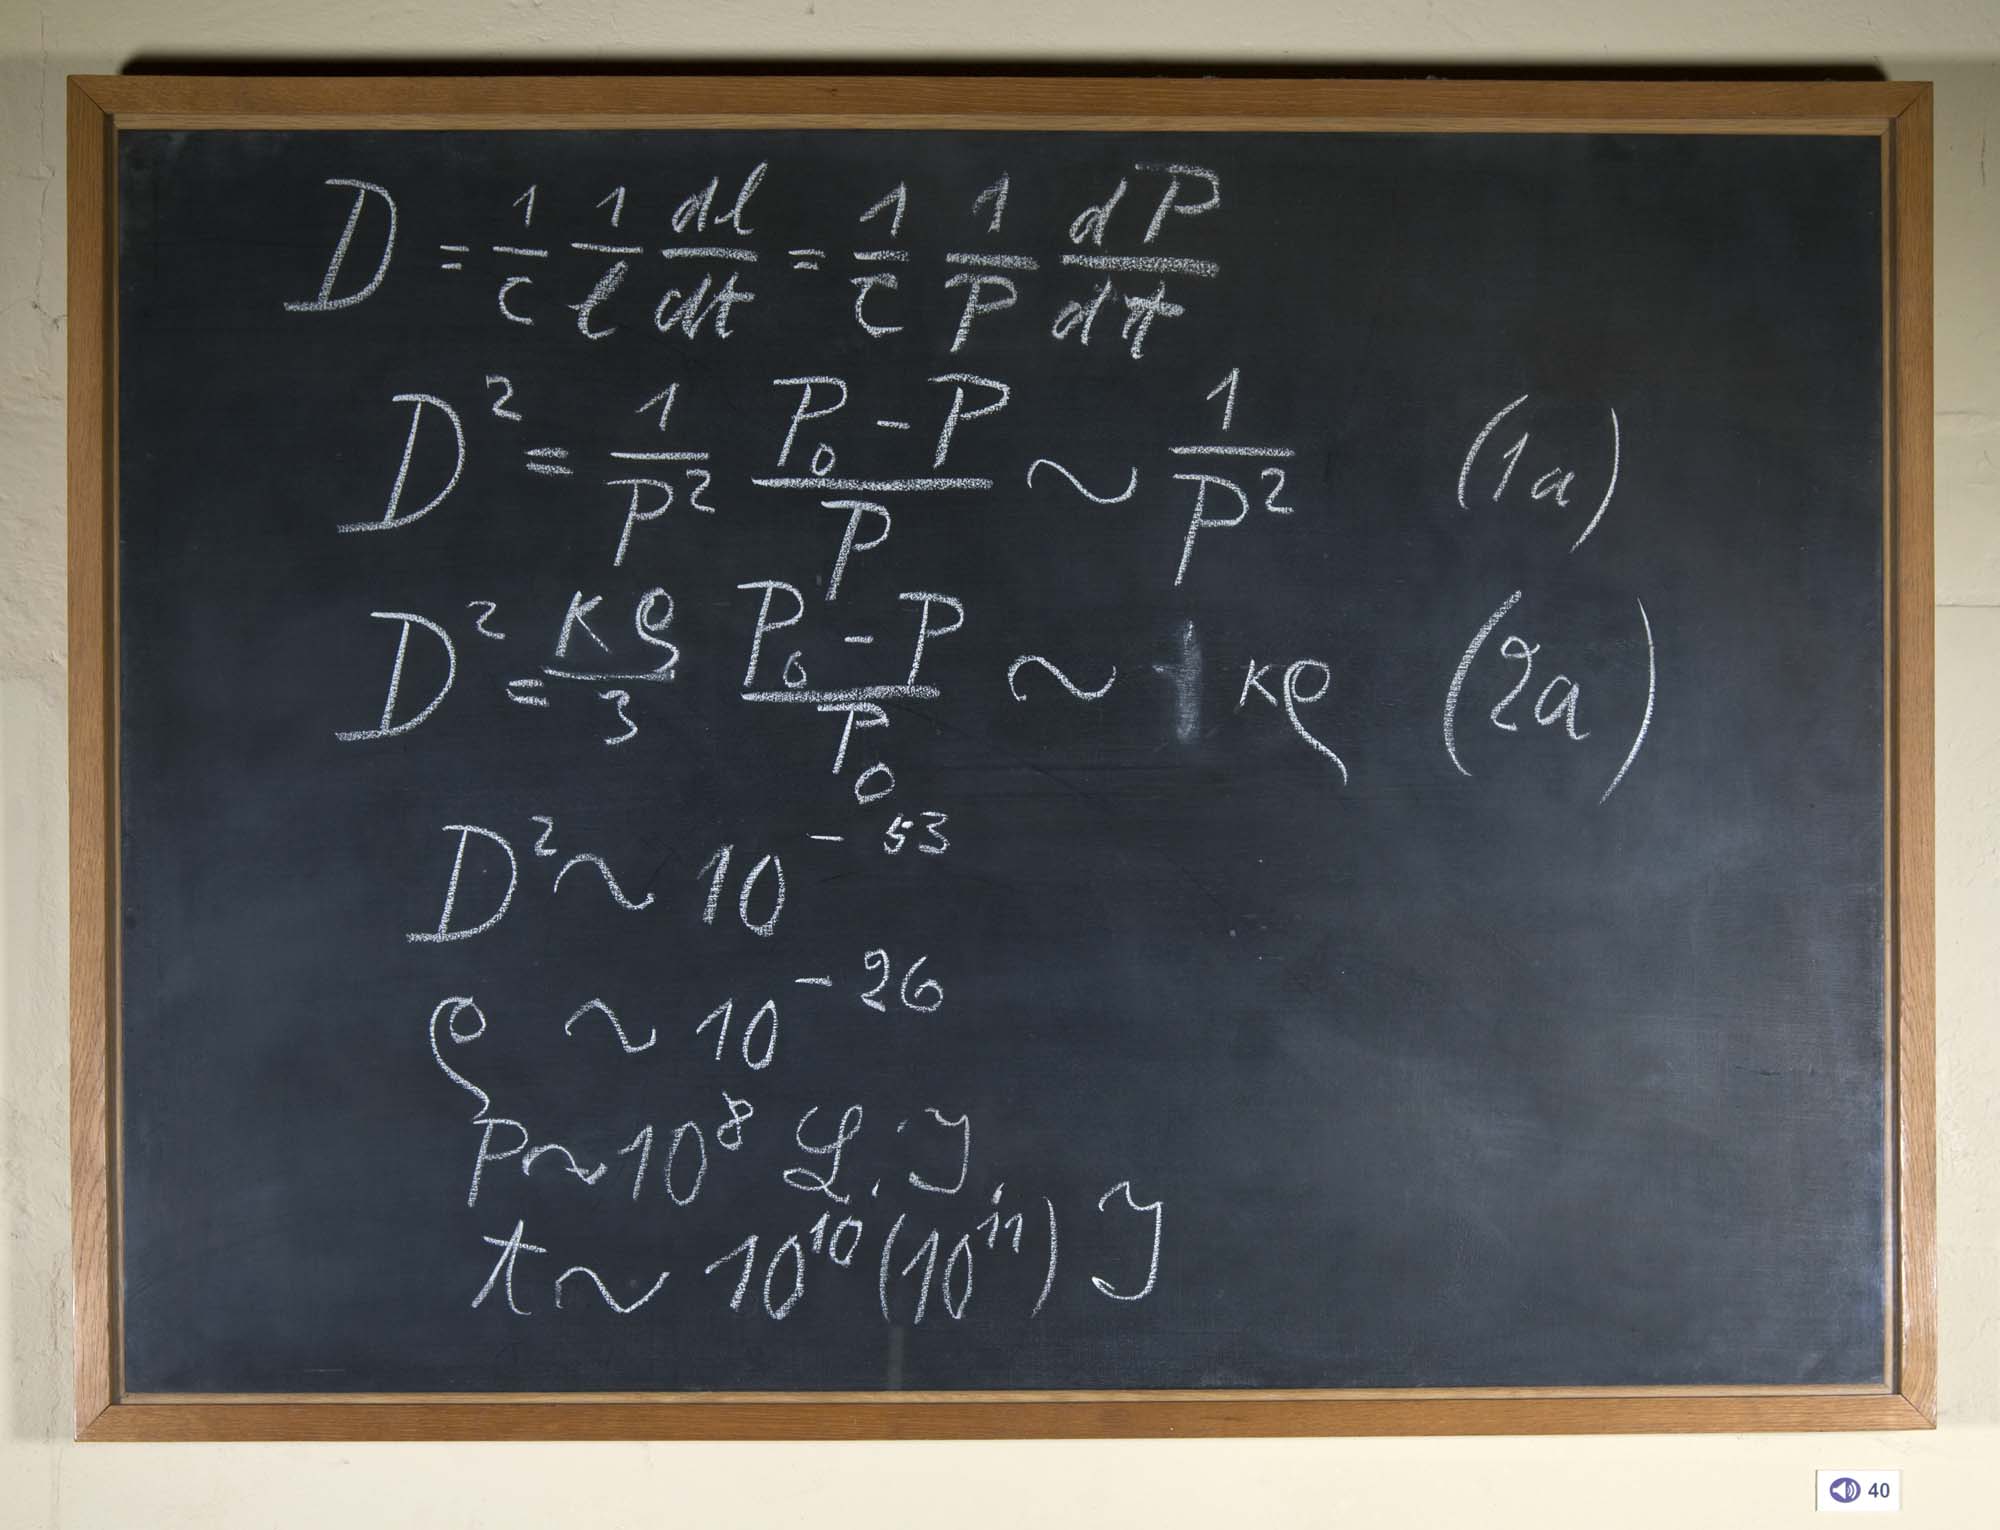 D = 1/c 1/l dl/dt = 1/c 1/P dP/dt
D² = 1/P² (P₀ − P)/P ~ 1/P² (1a)
D² = κρ/3 (P₀ − P)/P₀ ~ κρ (2a)
D² ~ 10⁻⁵³
ρ ~ 10⁻²⁶
P ~ 10⁸ L. J.
t ~ 10¹⁰ (10¹¹) J
40